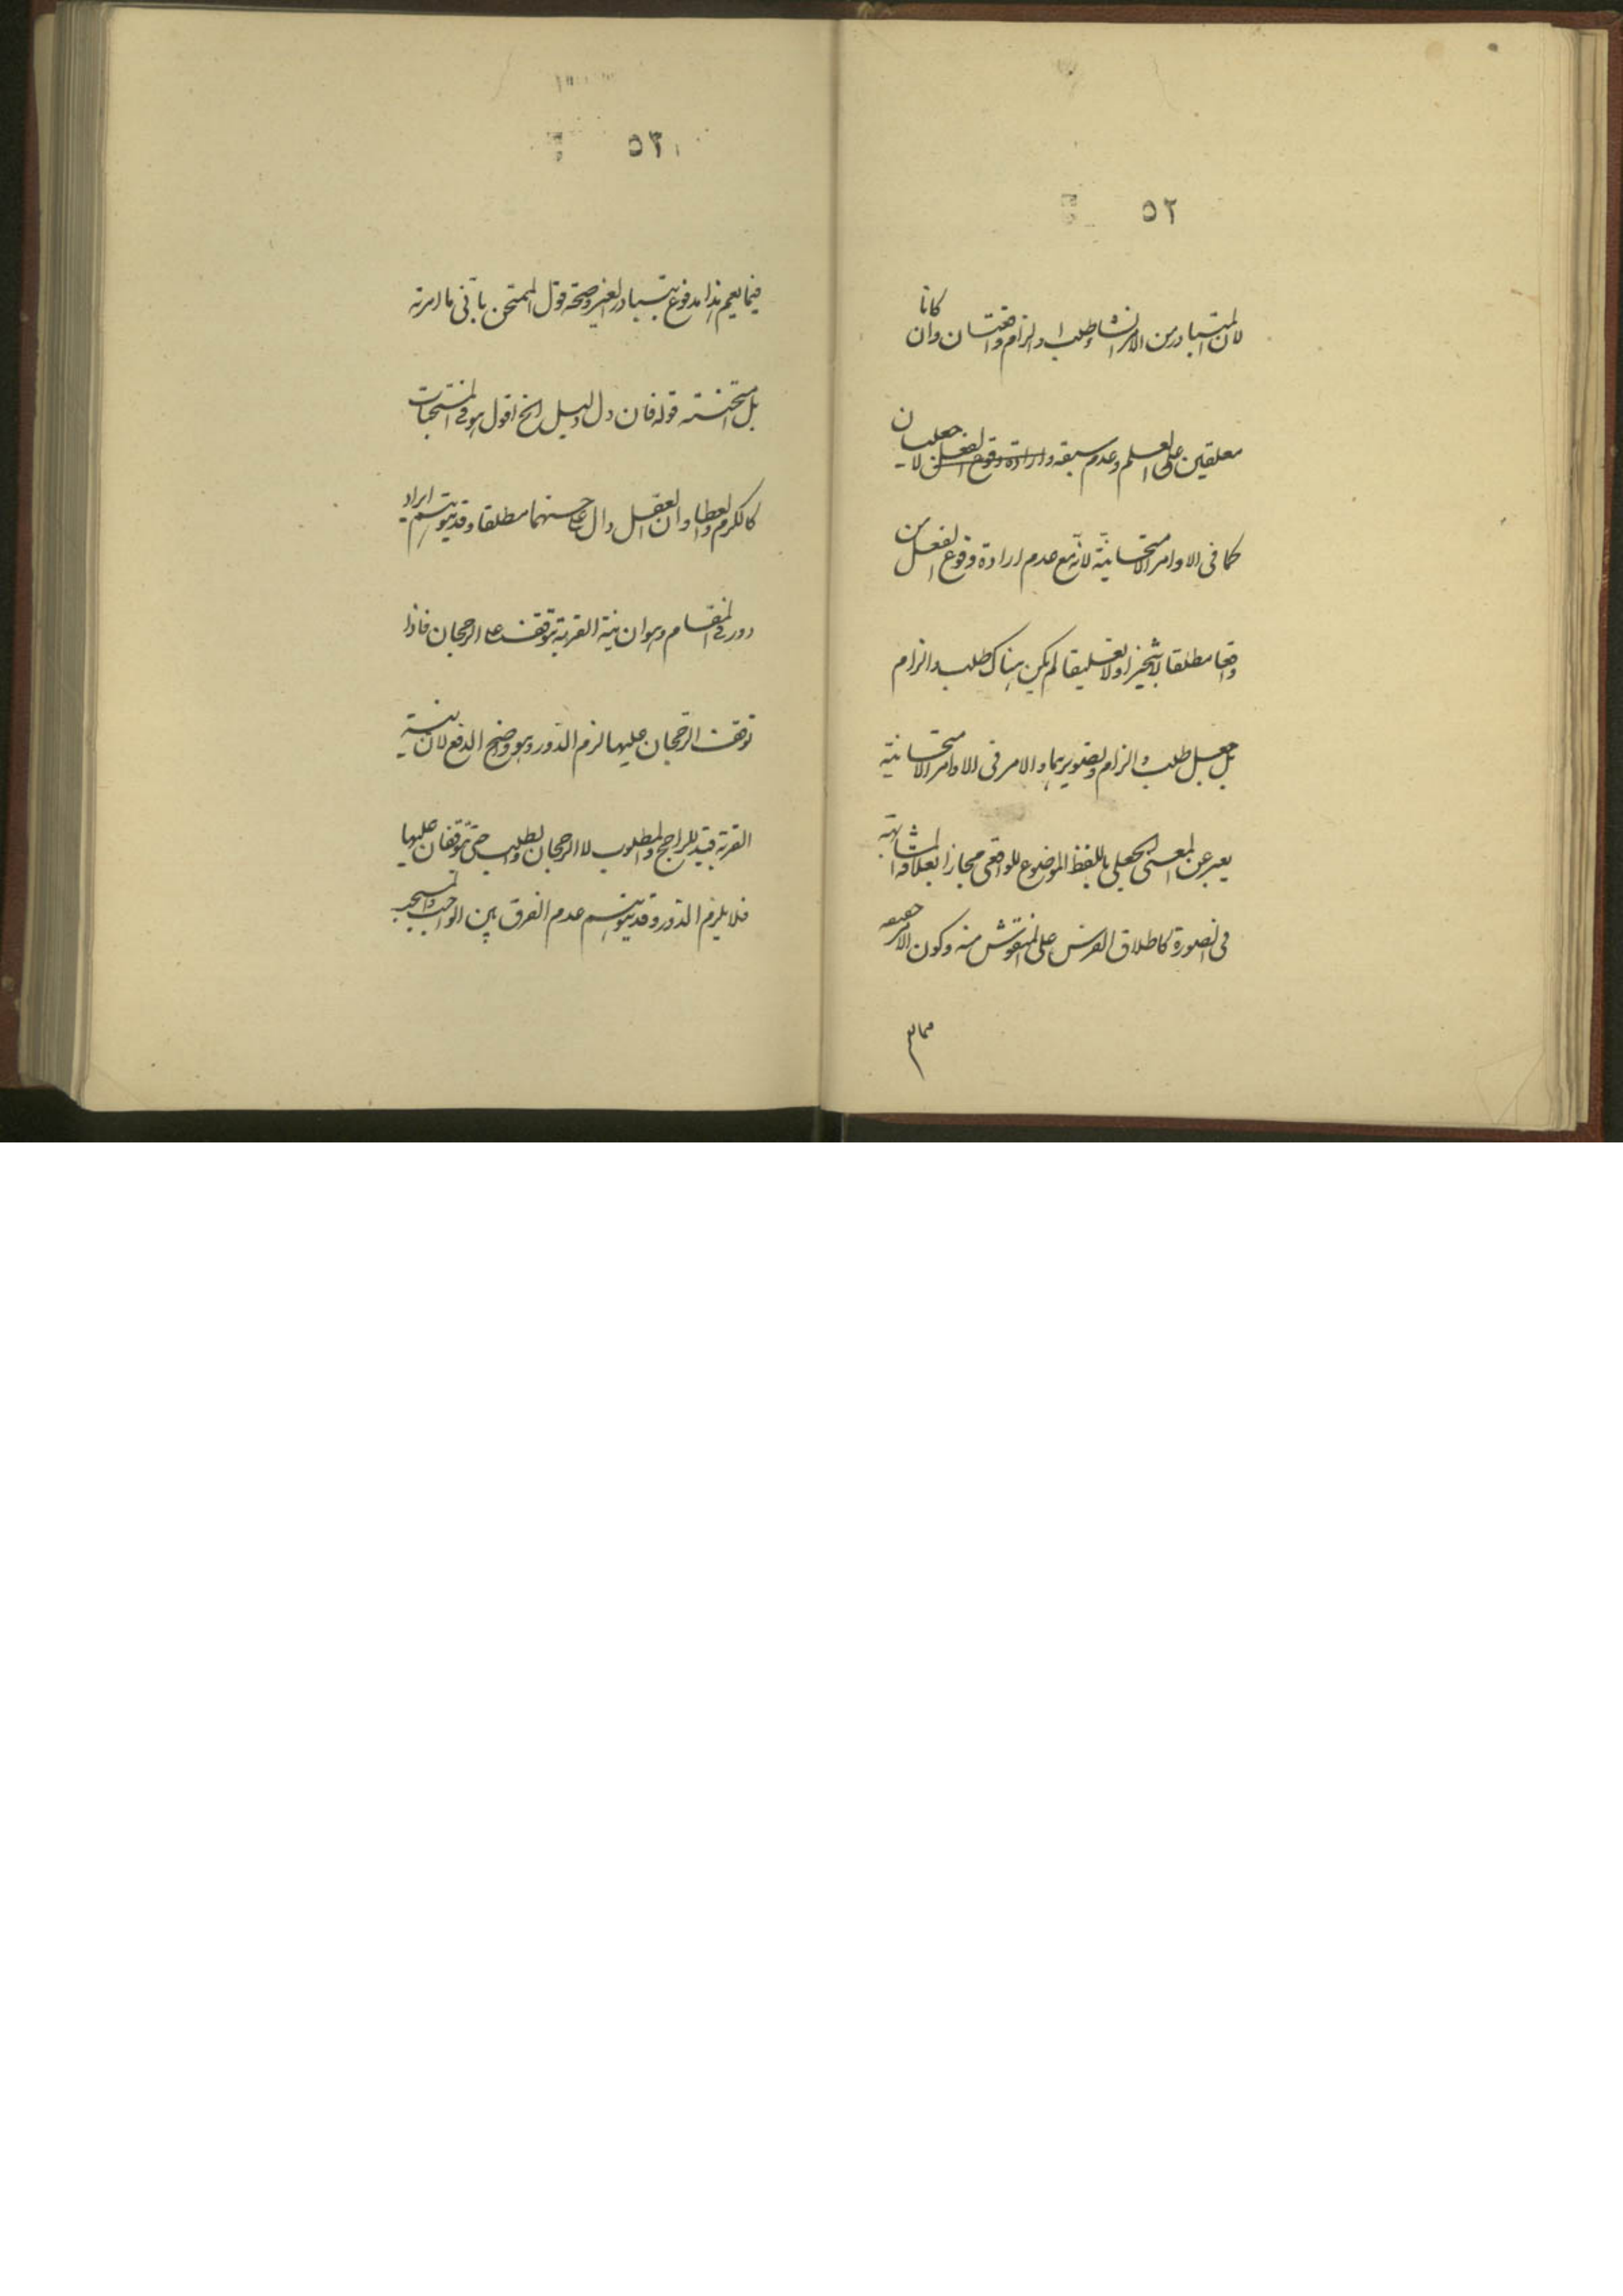 ٥٢
لان المتبادر من الامر انشاء طلب والزام واقعتيان وان كانا
معلقين على العلم وعدم سبقه وارادة وقوع الفعل لا جعليان
كما فى الاوامر الامتحانيّة لانّه مع عدم ارادة وقوع الفعل من
واقعا مطلقا لا تنجيزا ولا تعليقا لم يكن هناك طلب والزام
بل جعل طلب والزام وتصويرهما والامر فى الاوامر الامتحانية
يعبر عن المعنى الجعلى باللفظ الموضوع للواقعى مجازا بعلاقة المشابهة
فى الصورة كاطلاق الفرس على المنقوش منه وكون الامر حقيقة
٥٣
فيما يعم هذا مدفوع بتبادر الغير وصحة قول الممتحن باننى ما امرته
بل امتحنته قوله فان دل دليل الخ اقول هو فى المستحبات
كالكرم والعطا وان العقل دال على حسنهما مطلقا وقد يتوهم ايراد
دور فى المقام وهو ان نية القربة تتوقف على الرجحان فاذا
توقف الرجحان عليها لزم الدّور وهو واضح الدفع لان نية
القربة قيد للراجح والمطلوب لا الرجحان والطلب حتى يتوقفان عليها
فلا يلزم الدّور وقد يتوهم عدم الفرق بين الواجب والمستحب